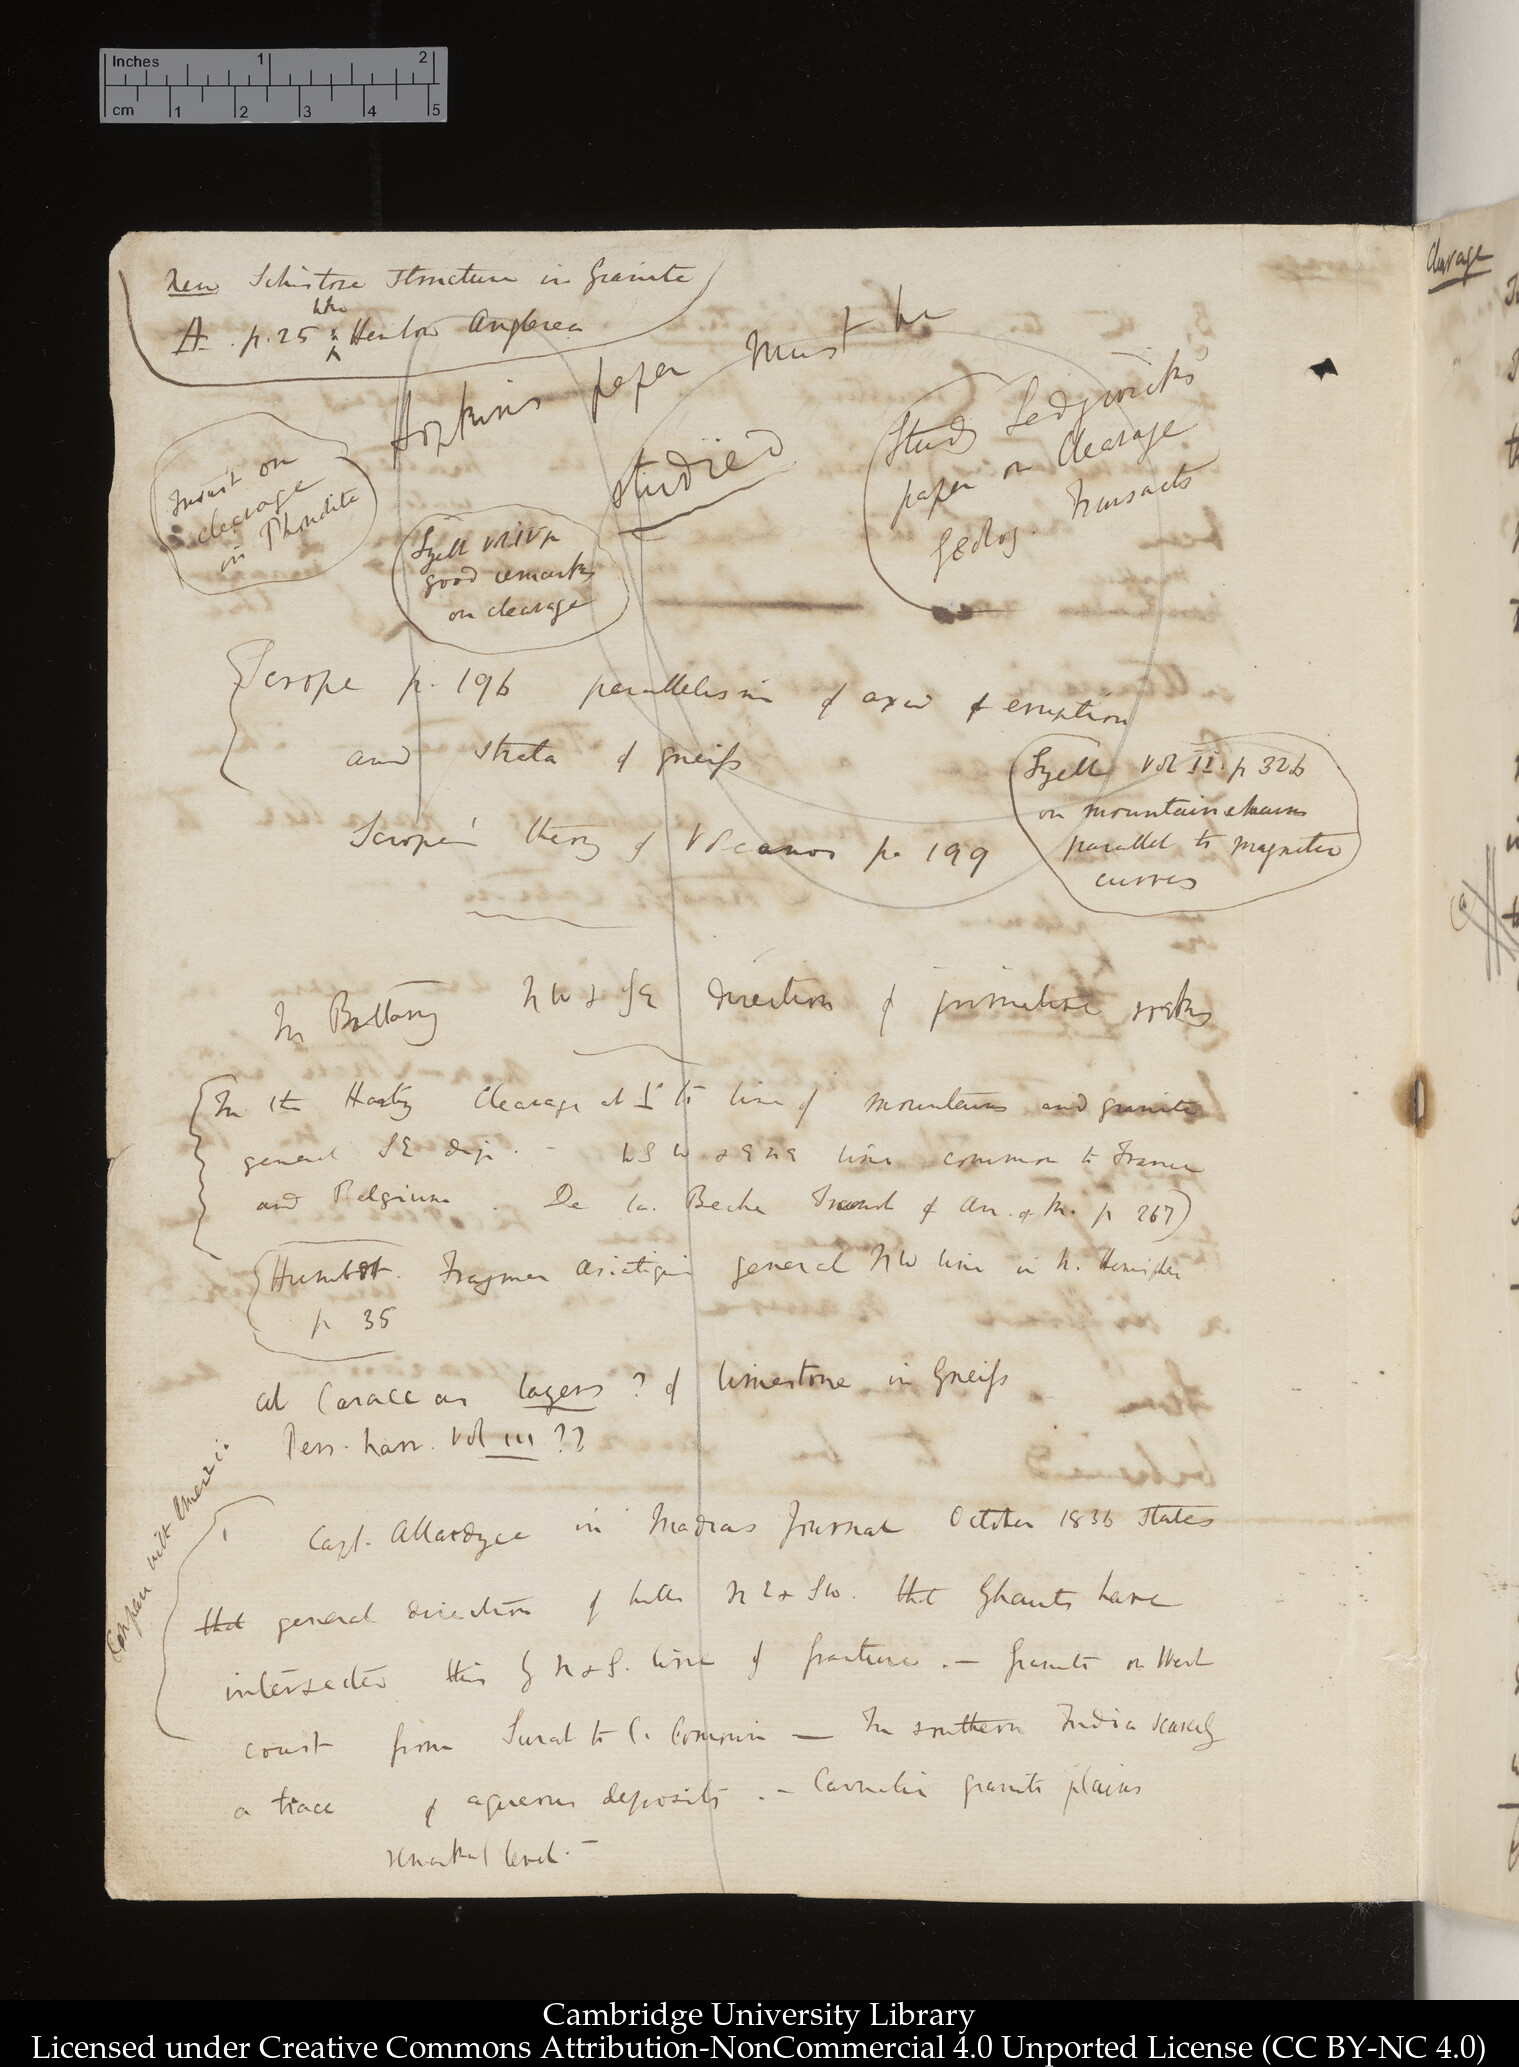 Inches 1 2
cm 1 2 3 4 5
New Schistose structure in Granite
A. p. 25 Henslow Anglesea
Hopkins paper must be
studied
Study Sedgwick's
paper on Cleavage
Geolog. Transacts
Insist on
cleavage
in
Lyell vol IV p
good remarks
on cleavage
Scrope p. 196 parallelism of axis of eruption
and strata of gneiss
Lyell vol II. p 326
on mountain chains
parallel to magnetic
curves
Scrope's theory of Volcanos p. 199
In Brittany NW & SE direction of primitive rocks
In the Hartz Cleavage at to line of mountains and granite
general SE dip. — WSW & ENE line common to France
and Belgium. De la Beche of An. of M. p 267)
Humboldt. Fragmen Asiatique general NW line in N. Hemisphe
p 35
at Caraccas layers? of limestone in Gneiss
Pers. Narr. Vol III ??
Compare with America
Capt. Allardyce in Madras Journal October 1836 states
that general direction of hills NE & SW. that Ghauts have
intersected this by N & S. line of fracture. — Granite on West
coast from Surat to C. Comorin — In southern India scarcely
a trace of aqueous deposits. — Carnatic granite plains
remarkab level. —
Cleavage
Cambridge University Library
Licensed under Creative Commons Attribution-NonCommercial 4.0 Unported License (CC BY-NC 4.0)